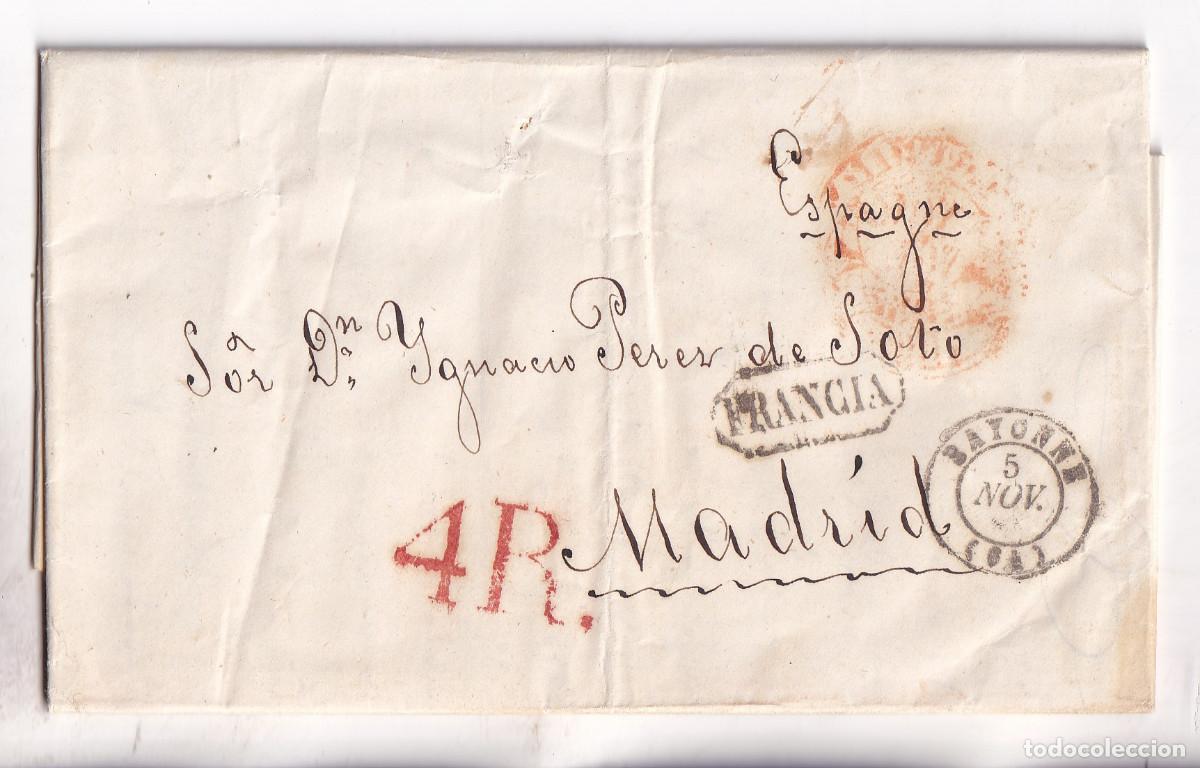 Espagne
Sor Dn Ygnacio Perez de Soto
FRANCIA
BAYONNE
5
NOV.
(64)
4R.
Madrid
todocoleccion